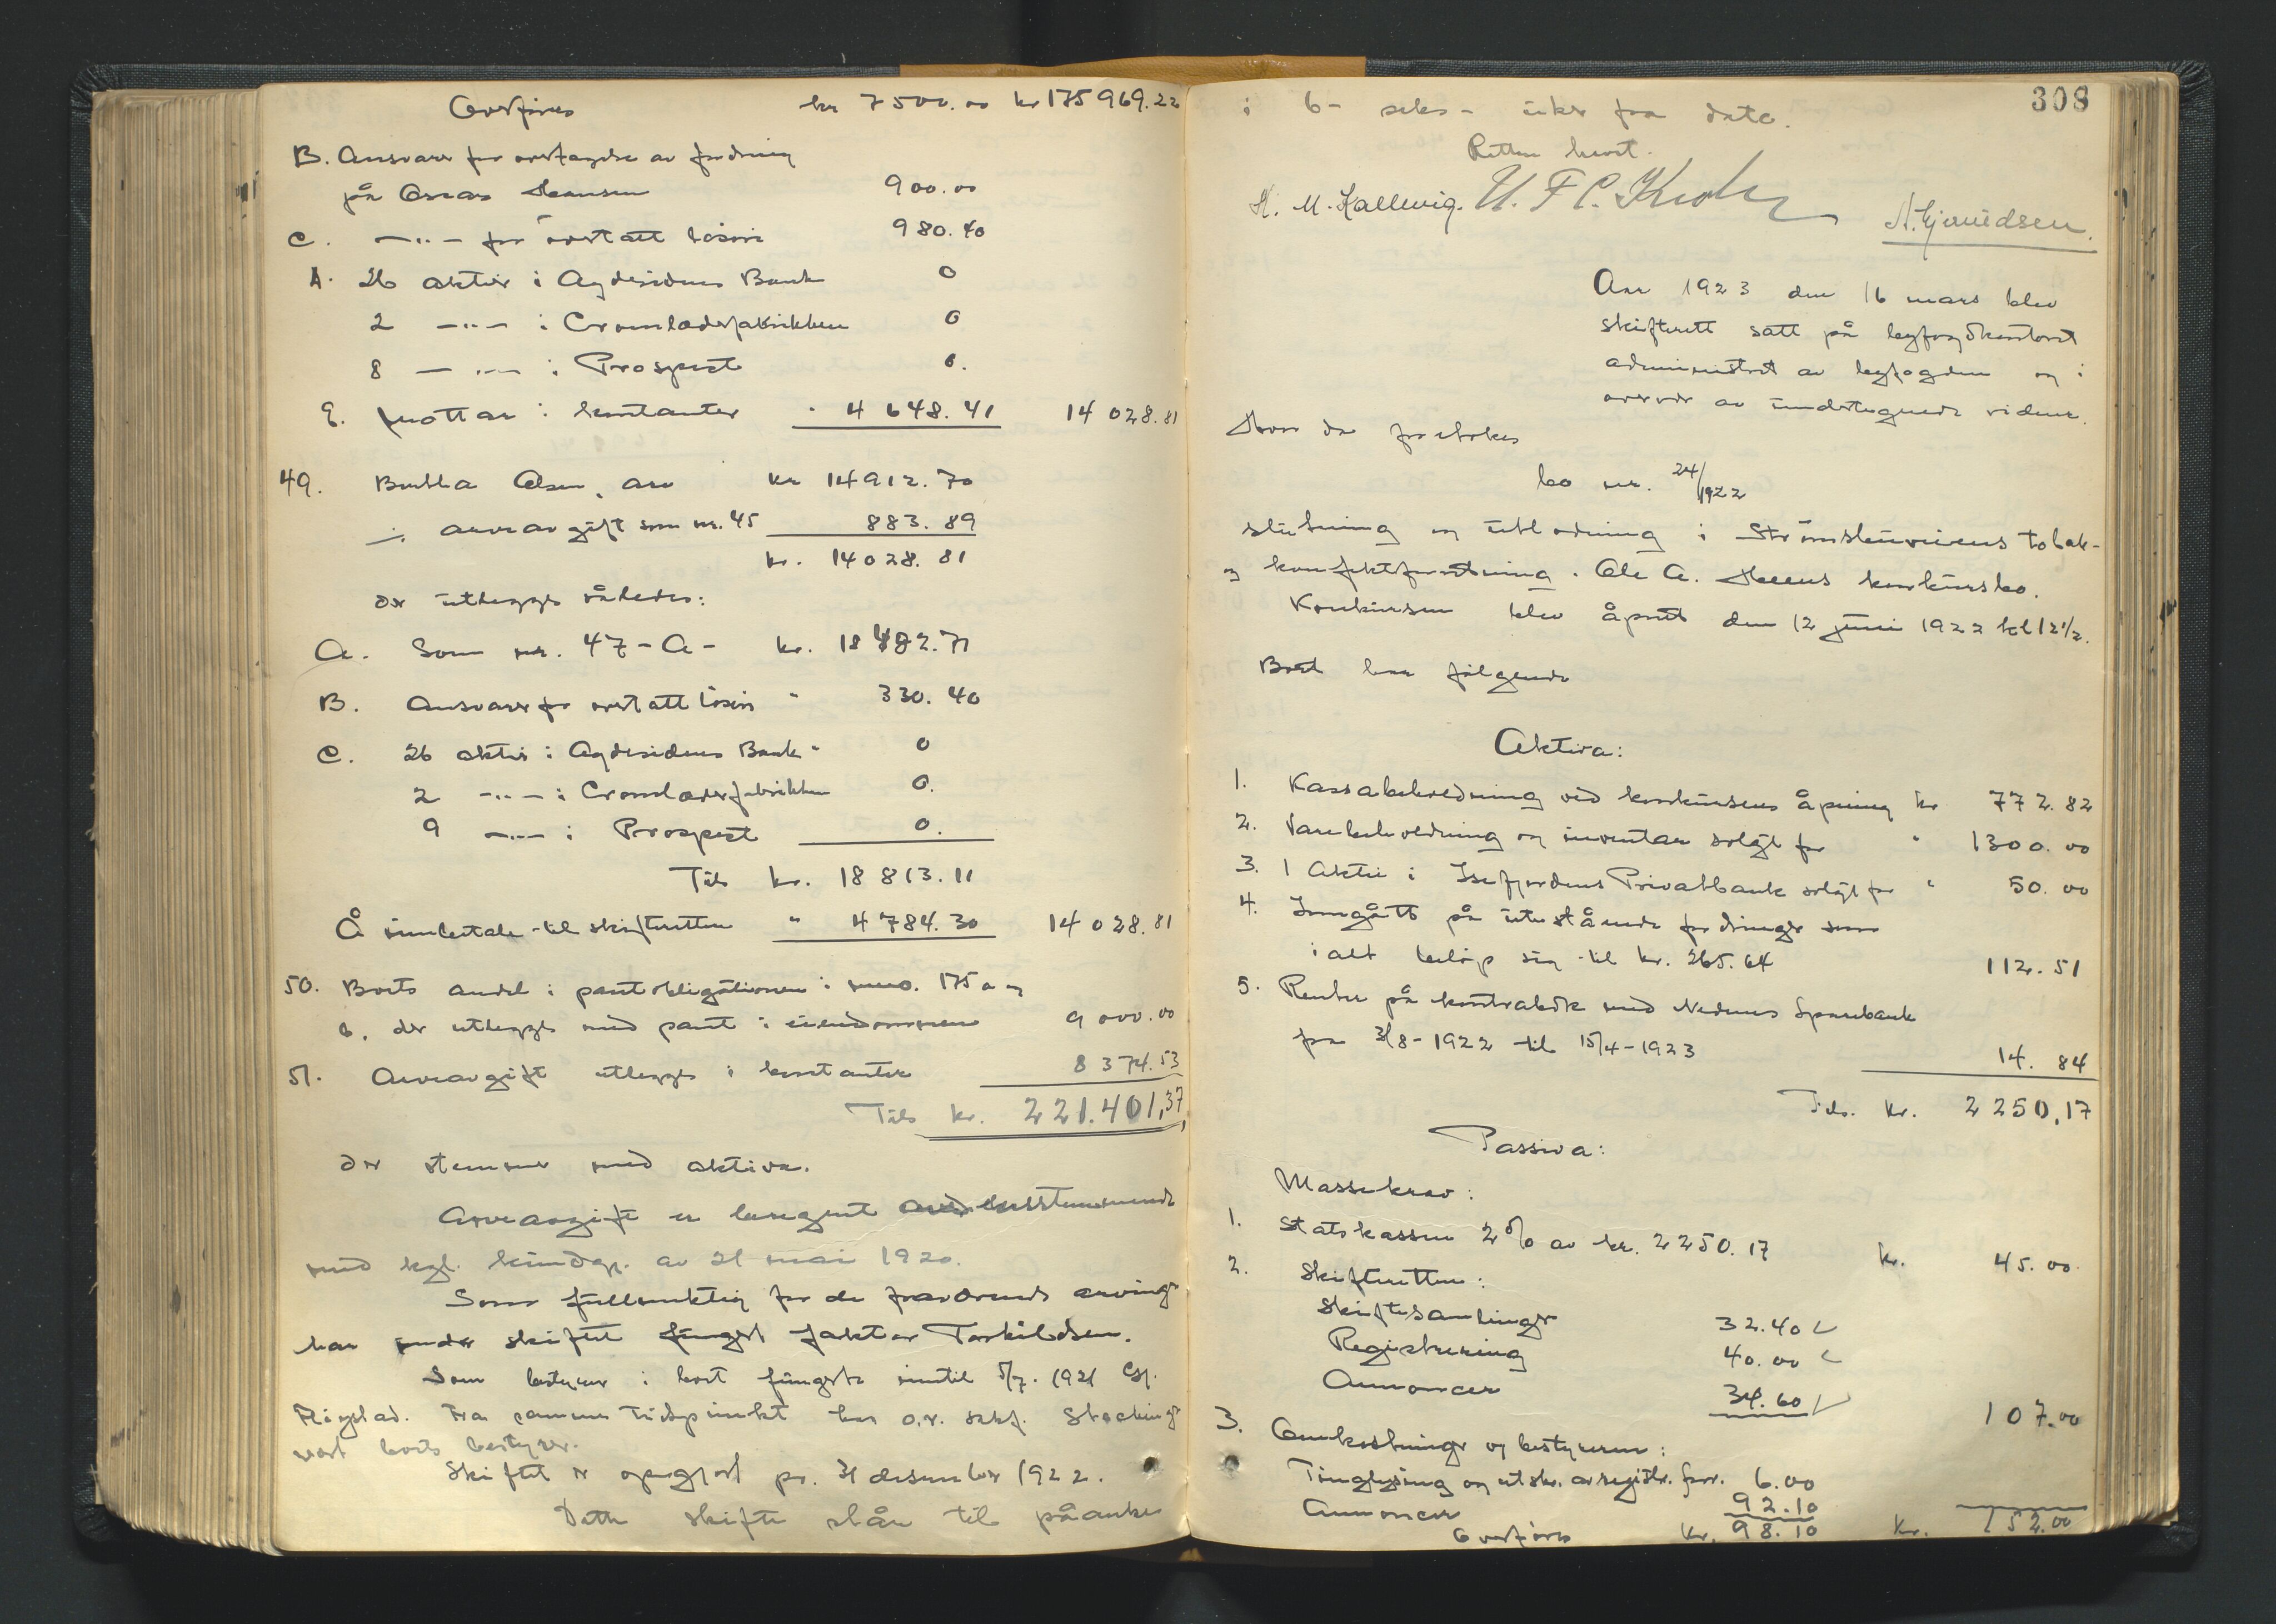 Overføres kr 7500.00 kr 175969.22
B. Ansvar for overtagelse av fordring
på Oscar Hansen 900.00
C. —"— for overtatt løsøre 980.40
D. 26 aktier i Agdesidens Bank 0
2 —"— i Cromlæderfabrikken 0
8 —"— i Prospect 0.
E. mottar i kontanter " 4648.41 14028.81
49. Olsen, arv kr 14912.70
÷ arveavgift som nr. 45 883.89
kr. 14028.81
der utlegges således:
A. Som nr. 47-A- kr. 18482.71
B. Ansvar for overtatt løsøre " 330.40
C. 26 aktier i Agdesidens Bank " 0
2 —"— i Cromlæderfabrikken 0.
9 —"— i Prospect 0.
Tils kr. 18813.11
Å innbetale til skifteretten " 4784.30 14028.81
50. Boets andel i pantobligationen i 175 a og
b. der utlegges med pant i eiendommen 9000.00
51. Arveavgift utlegges i kontanter 8374.53
Tils kr. 221.401,37
der stemmer med aktiva.
Arveavgift er beregnet overensstemmende
med kgl. kundgj. av 21 mai 1920.
Som fullmektig for de fraværende arvinger
har under skiftet fungert faktor Torkildsen.
Som bestyrer i boet fungerte inntil 5/7. 1921 Gf.
Fra samme tidspunkt har o.r. sakf.
vært boets bestyrer.
Skiftet er opgjort pr. 31 desember 1922.
Dette skifte står til påanke
308
i 6- seks- uker fra dato.
Retten hevet.
H. M. Kallevig. A. Gjmidsen.
Aar 1923 den 16 mars blev
skifterett satt på byfogdkontoret
administrert av byfogden og i
overvær av undertegnede vidner.
Hvor da foretokes
bo nr. 24/1922
slutning og utlodning i Strømsbuveiens tobak-
og konfektforretning. Ole A. konkursbo.
Konkursen blev åpnet den 12 juni 1922 kl 12 1/2.
Boet har følgende
Aktiva:
1. Kassabeholdning ved konkursens åpning kr 772.82
2. Varebeholdning og inventar solgt for " 1300.00
3. 1 Aktie i Privatbank solgt for " 50.00
4. Inngått på utestående fordringer som
i alt beløp sig til kr. 265.64 112.51
5. Renter på kontrabok med Nedenes Sparebank
fra 31/8-1922 til 15/4-1923 14.84
Tils. kr. 2250,17
Passiva:
Massekrav:
1. Statskassen 2% av kr. 2250.17 kr. 45.00
2. Skifteretten:
Skiftesamlinger 32.40
Registrering 40.00
Annoncer 34.60 107.00
3. Omkostninger og bestyreren:
Tinglysing og utskr. av registr. forr. 6.00
Annoncer 92.10
Overføres kr. 98.10 kr. 152.00